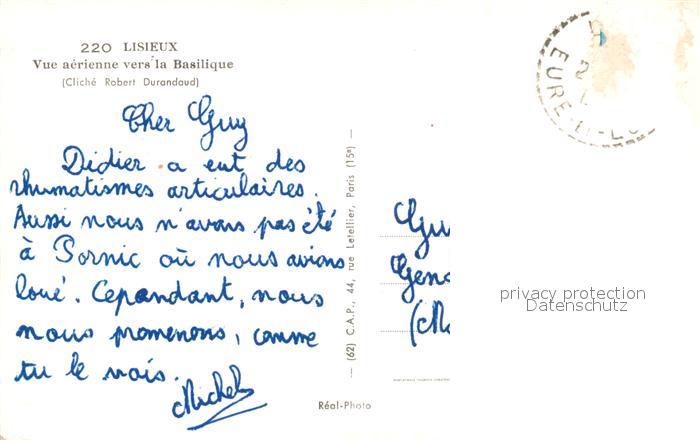 220 LISIEUX
Vue aérienne vers la Basilique
(Cliché Robert Durandaud)
Cher Guy
Didier a eut des
rhumatismes articulaires.
Aussi nous n'avons pas été
à Pornic où nous avions
loué. Cependant, nous
nous promenons, comme
tu le vois.
Michel
(62) C.A.P., 44, rue Letellier, Paris (15e)
Réal-Photo
EURE-
privacy protection
Datenschutz